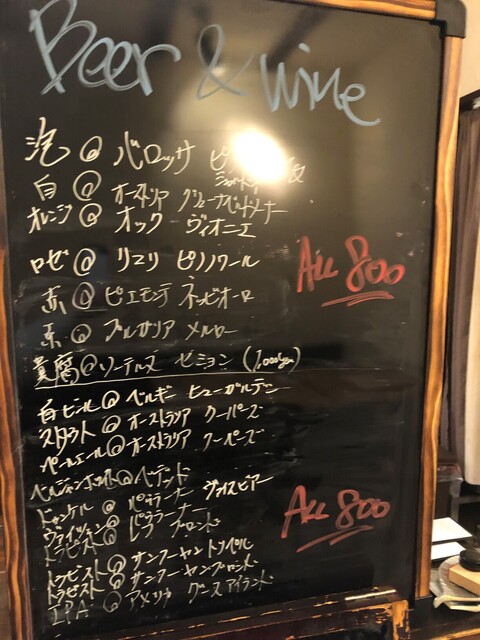 Beer & Wine
泡 @ バロッサ
白 @ オーストリア グリューナーベルトリーナー
オレンジ @ オック ヴィオニエ
ロゼ @ リマリ ピノノワール
ALL 800
赤 @ ピエモンテ ネッビオーロ
赤 @ ブルガリア メルロー
貴腐 @ ソーテルヌ セミヨン (1,000yen)
白ビール @ ベルギー ヒューガルデン
スタウト @ オーストラリア クーパーズ
ペールエール @ オーストラリア クーパーズ
ベルジャンホワイト @ ベデット
ドゥンケル @ パウラーナー ヴァイスビアー
ヴァイツェン @ パウラーナー
ALL 800
トラピスト @ レフ ブロンド
トラピスト @ サンフーヤン トリペル
トラピスト @ サンフーヤン ブロンド
IPA @ アメリカ グースアイランド